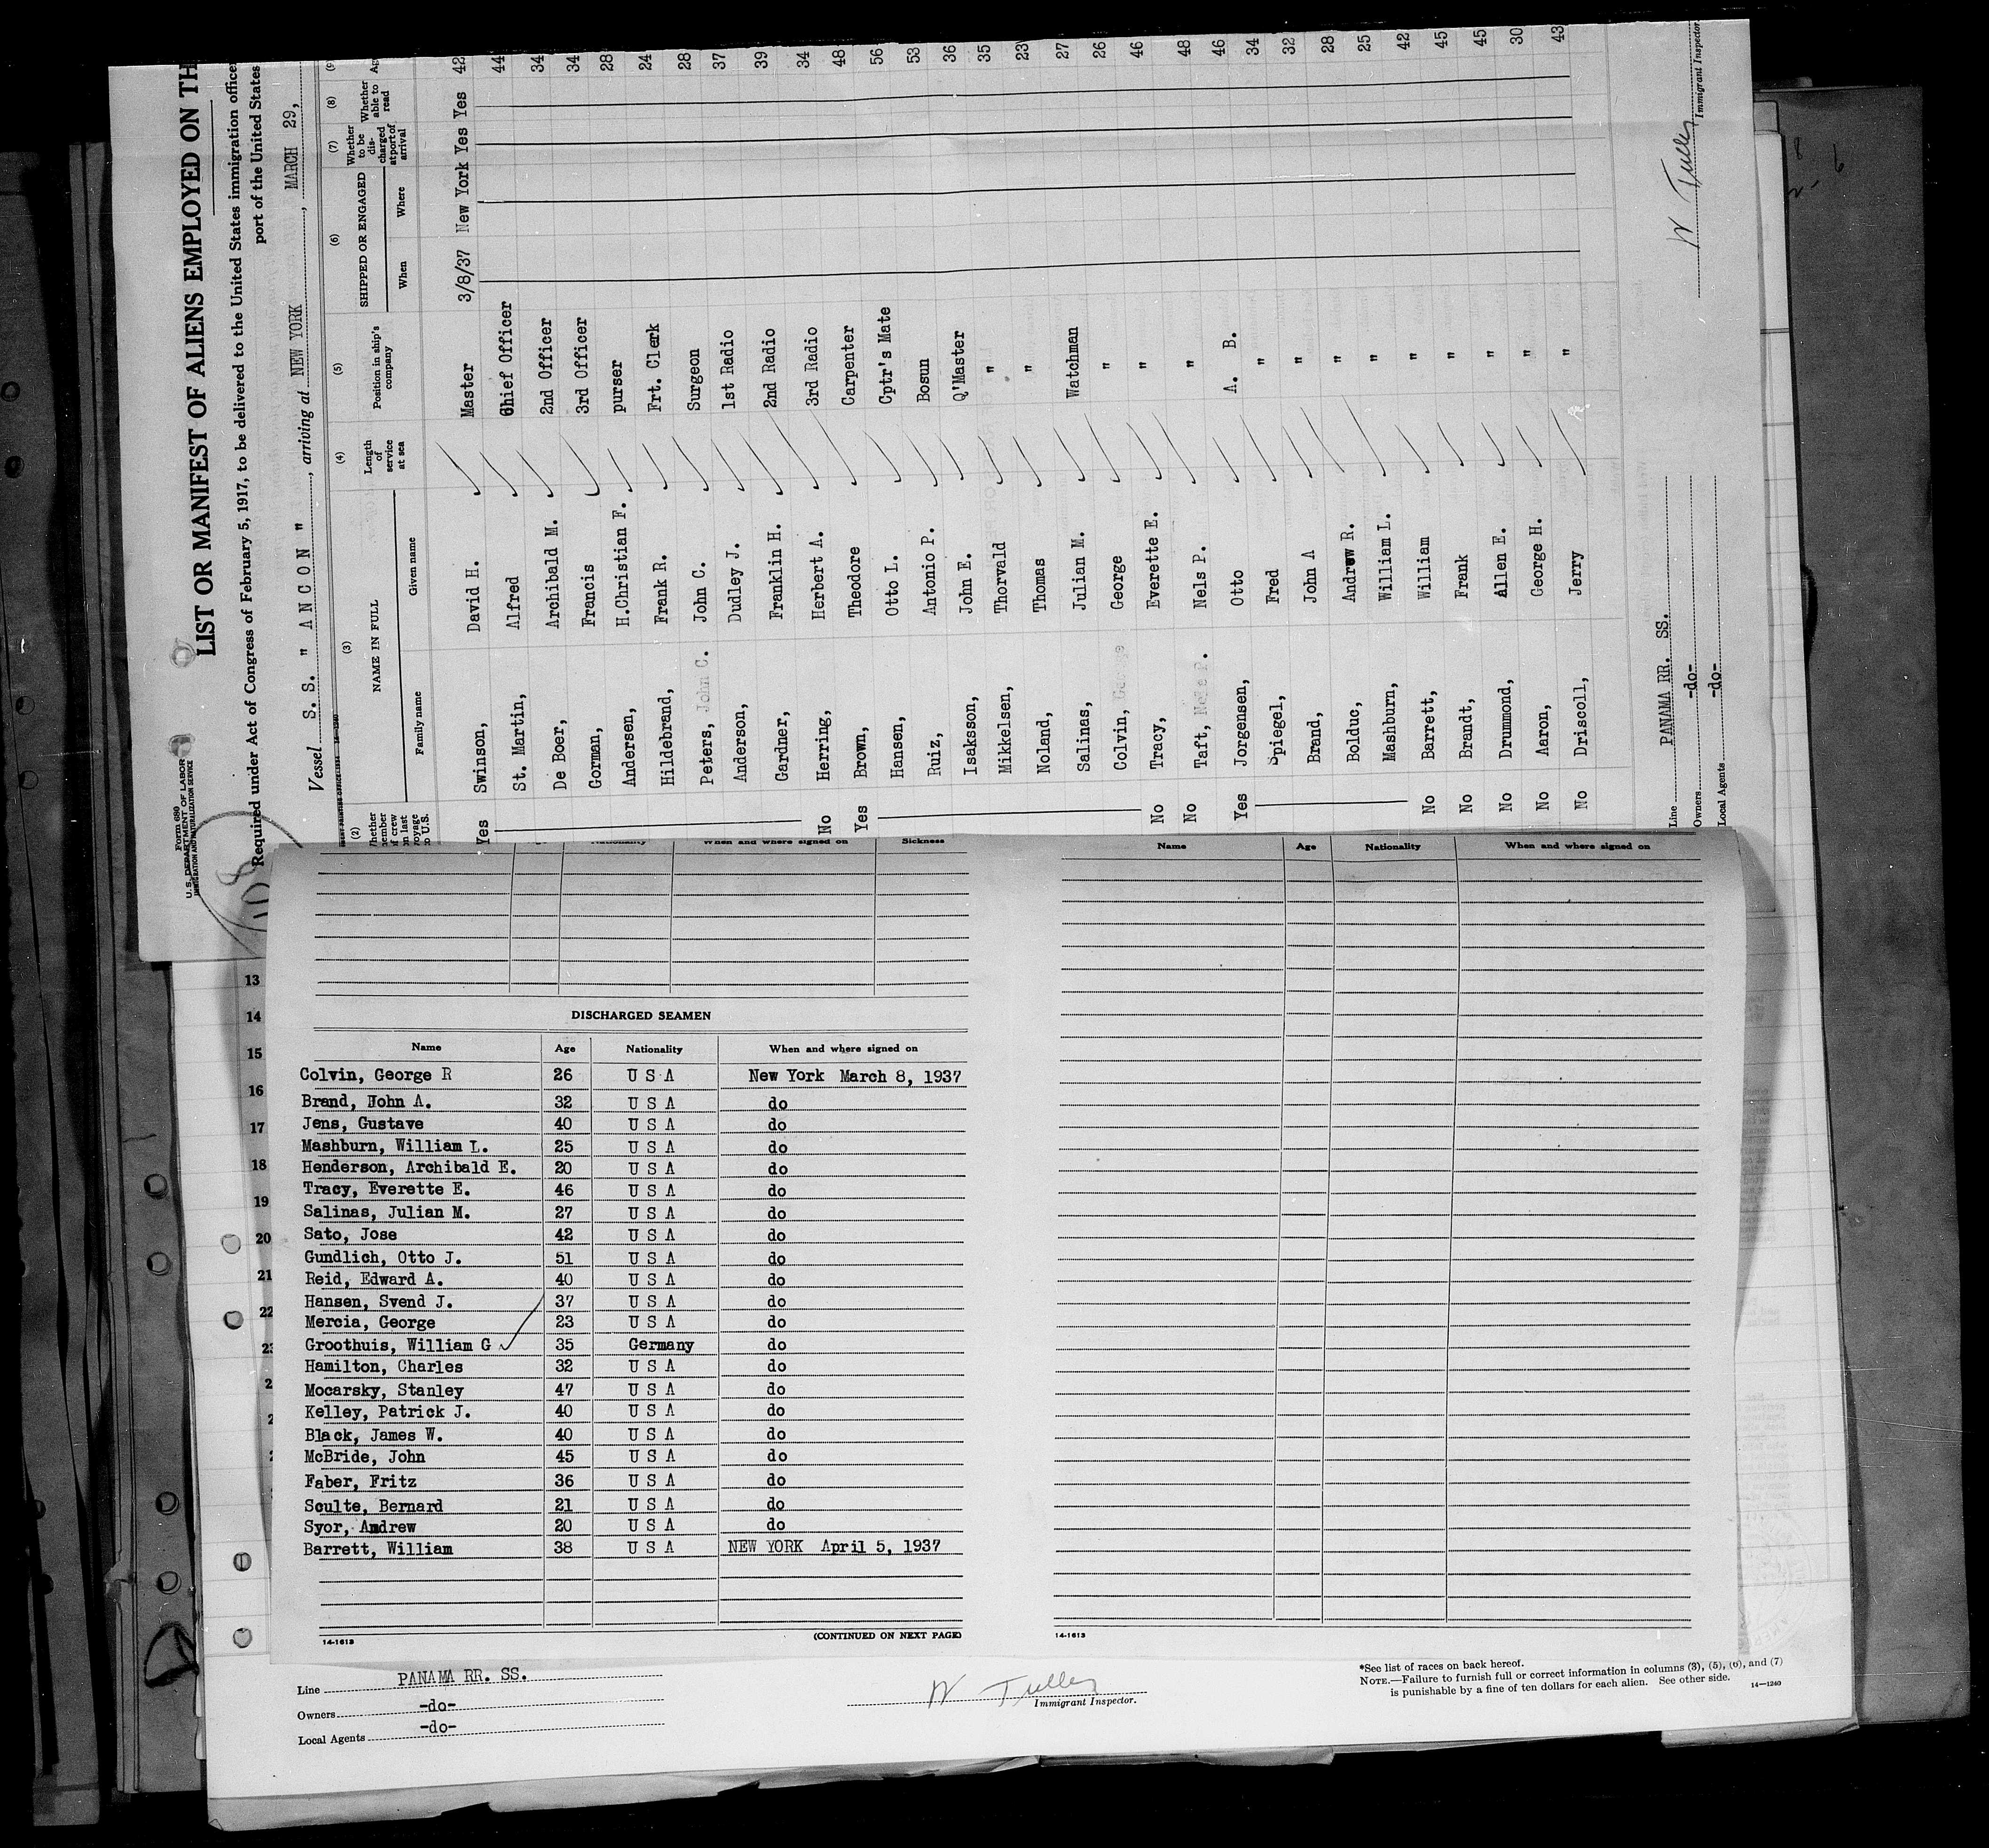 Form 680
U.S. DEPARTMENT OF LABOR
IMMIGRATION AND NATURALIZATION SERVICE
LIST OR MANIFEST OF ALIENS EMPLOYED ON TH
Required under Act of Congress of February 5, 1917, to be delivered to the United States immigration officer
port of the United States
Vessel S. S. " ANCON ", arriving at NEW YORK, MARCH 29,
(2) (3) (4) (5) (6) (7) (8) (9)
Whether member of crew on last voyage to U.S. NAME IN FULL Length of service at sea Position in ship's company SHIPPED OR ENGAGED Whether to be discharged at port of arrival Whether able to read Ag
Family name Given name When Where
Yes Swinson, David H. Master 3/8/37 New York Yes Yes 42
St. Martin, Alfred Chief Officer 44
De Boer, Archibald M. 2nd Officer 34
Gorman, Francis 3rd Officer 34
Andersen, H.Christian F. purser 28
Hildebrand, Frank R. Frt. Clerk 24
Peters, John C. John C. Surgeon 28
Anderson, Dudley J. 1st Radio 37
Gardner, Franklin H. 2nd Radio 39
No Herring, Herbert A. 3rd Radio 34
Yes Brown, Theodore Carpenter 48
Hansen, Otto L. Cptr's Mate 56
Ruiz, Antonio P. Bosun 53
Isaksson, John E. Q'Master 36
Mikkelsen, Thorvald " 35
Noland, Thomas " 23
Salinas, Julian M. Watchman 27
Colvin, George George " 26
No Tracy, Everette E. " 46
No Taft, Nels P. Nels P. " 48
Yes Jorgensen, Otto A. B. 46
Spiegel, Fred " 34
Brand, John A " 32
Bolduc, Andrew R. " 28
Mashburn, William L. " 25
No Barrett, William " 42
No Brandt, Frank " 45
No Drummond, Allen E. " 45
No Aaron, George H. " 30
No Driscoll, Jerry " 43
Line PANAMA RR. SS.
Owners -do-
Local Agents -do-
W Tuller
Immigrant Inspector
Nationality When and where signed on Sickness
Name Age Nationality When and where signed on
13
14
15
16
17
18
19
20
21
22
DISCHARGED SEAMEN
Name Age Nationality When and where signed on
Colvin, George R 26 U S A New York March 8, 1937
Brand, John A. 32 U S A do
Jens, Gustave 40 U S A do
Mashburn, William L. 25 U S A do
Henderson, Archibald E. 20 U S A do
Tracy, Everette E. 46 U S A do
Salinas, Julian M. 27 U S A do
Sato, Jose 42 U S A do
Gundlich, Otto J. 51 U S A do
Reid, Edward A. 40 U S A do
Hansen, Svend J. 37 U S A do
Mercia, George 23 U S A do
Groothuis, William G 35 Germany do
Hamilton, Charles 32 U S A do
Mocarsky, Stanley 47 U S A do
Kelley, Patrick J. 40 U S A do
Black, James W. 40 U S A do
McBride, John 45 U S A do
Faber, Fritz 36 U S A do
Sculte, Bernard 21 U S A do
Syor, Andrew 20 U S A do
Barrett, William 38 U S A NEW YORK April 5, 1937
14-1613 (CONTINUED ON NEXT PAGE)
14-1613
Line PANAMA RR. SS.
Owners -do-
Local Agents -do-
W Tuller
Immigrant Inspector.
*See list of races on back hereof.
NOTE.—Failure to furnish full or correct information in columns (3), (5), (6), and (7)
is punishable by a fine of ten dollars for each alien. See other side. 14—1240